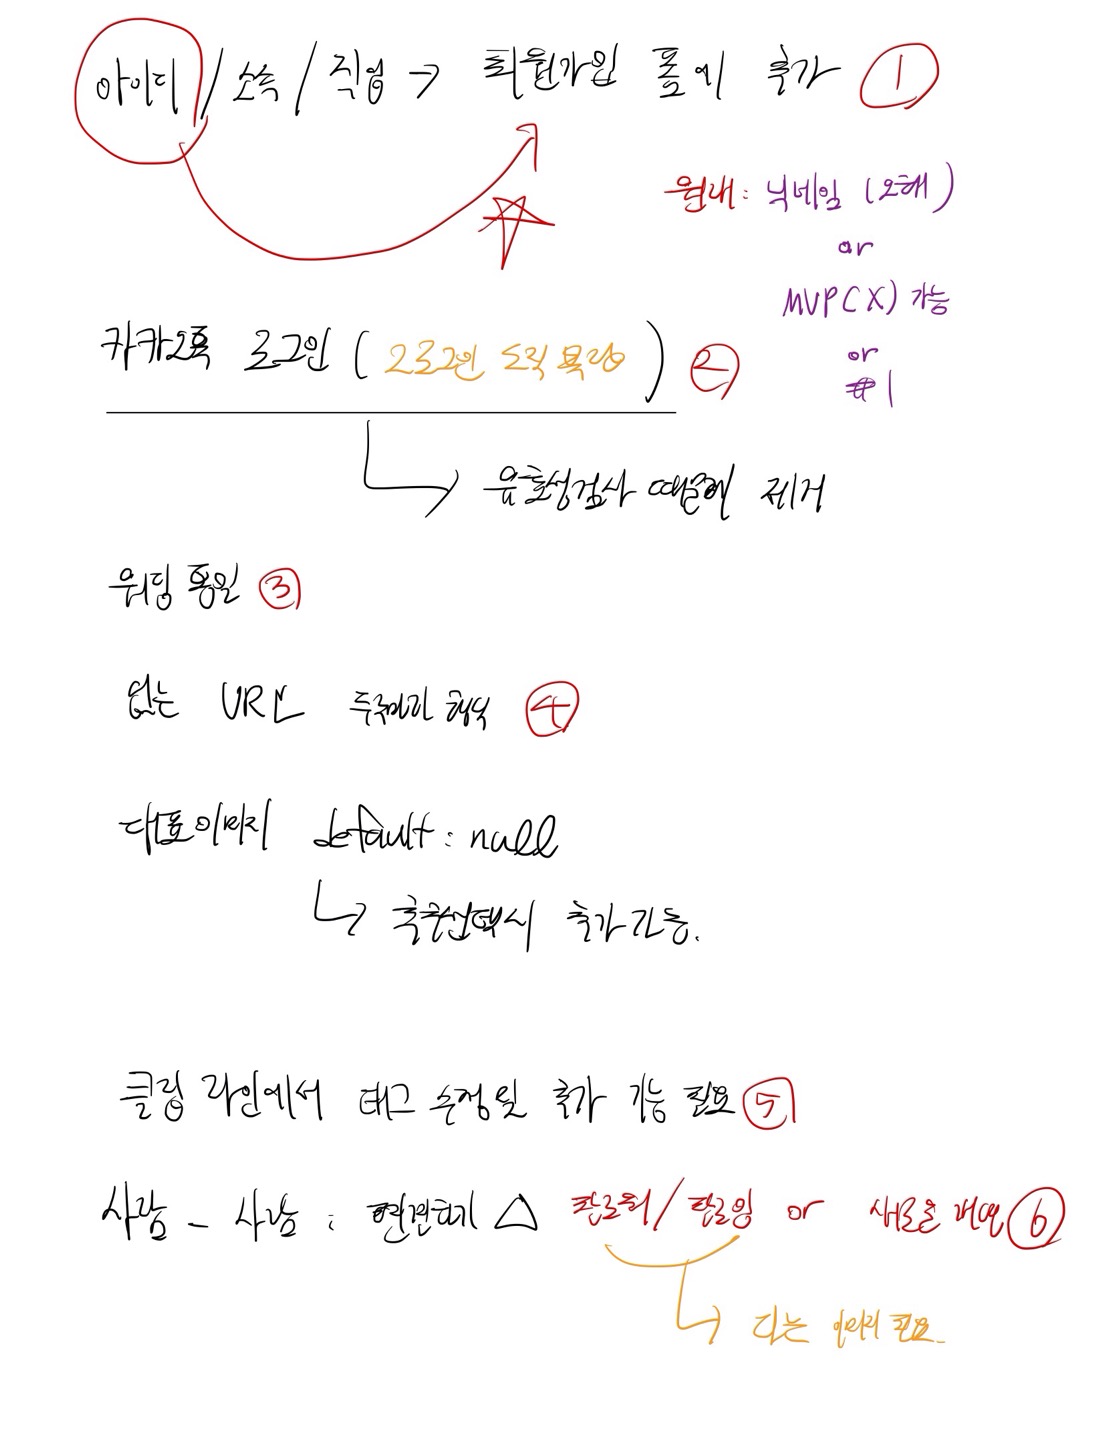 아이디 / 소속 / 직업 → 회원가입 폼에 추가 ①
원래: 닉네임 (오해)
or
MVP(X) 가능
or
#1
카카오톡 로그인 ( ) ②
유효성검사 때문에 제거
워딩 통일 ③
없는 URL ④
대표이미지 default: null
추가 가능.
클링 라인에서 태그 수정 및 추가 기능 필요 ⑤
사람 - 사람 : △ 팔로워 / 팔로잉 or 새로운 개념 ⑥
다는 이미지 필요.